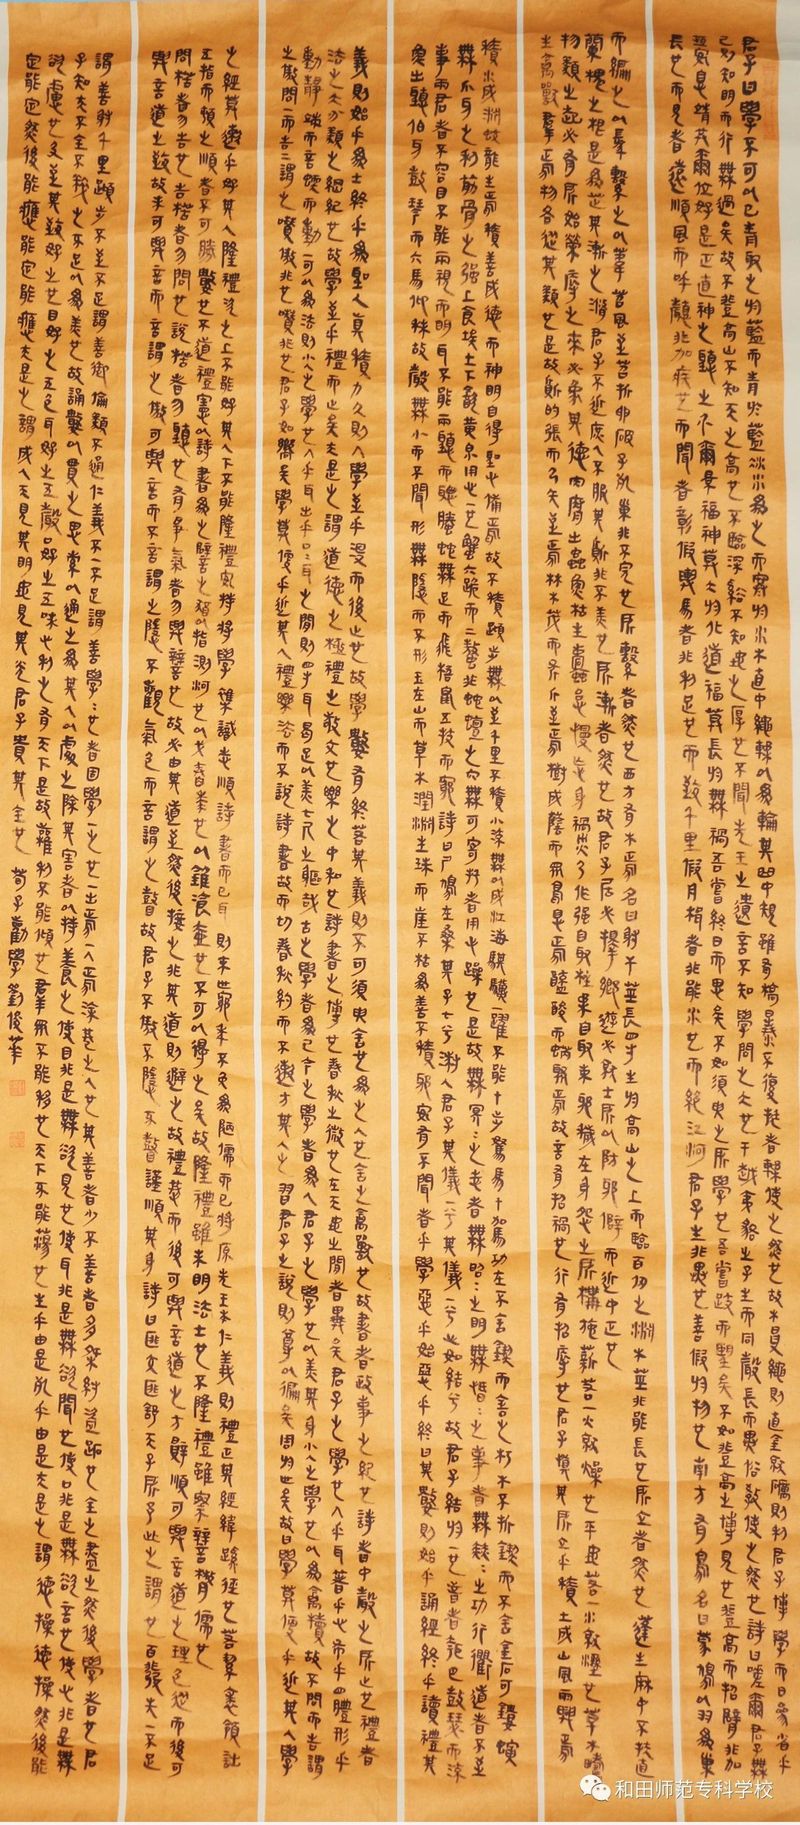 君子曰學不可以已青取之於藍而青於藍冰水為之而寒於水木直中繩輮以為輪其曲中規雖有槁暴不復挺者輮使之然也故木受繩則直金就礪則利君子博學而日參省乎
己則知明而行無過矣故不登高山不知天之高也不臨深谿不知地之厚也不聞先王之遺言不知學問之大也干越夷貉之子生而同聲長而異俗教使之然也詩曰嗟爾君子無
恆息靖共爾位好是正直神之聽之介爾景福神莫大於化道福莫長於無禍吾嘗終日而思矣不如須臾之所學也吾嘗跂而望矣不如登高之博見也登高而招臂非加
長也而見者遠順風而呼聲非加疾也而聞者彰假輿馬者非利足也而致千里假舟楫者非能水也而絕江河君子生非異也善假於物也南方有鳥名曰蒙鳩以羽為巢
而編之以髮繫之以葦苕風至苕折卵破子死巢非不完也所繫者然也西方有木焉名曰射干莖長四寸生於高山之上而臨百仞之淵木莖非能長也所立者然也蓬生麻中不扶直
蘭槐之根是為芷其漸之滫君子不近庶人不服其質非不美也所漸者然也故君子居必擇鄉遊必就士所以防邪僻而近中正也
物類之起必有所始榮辱之來必象其德肉腐出蟲魚枯生蠹怠慢忘身禍災乃作強自取柱柔自取束邪穢在身怨之所構施薪若一火就燥也平地若一水就溼也草木疇
生禽獸群焉物各從其類也是故質的張而弓矢至焉林木茂而斧斤至焉樹成蔭而眾鳥息焉醯酸而蜹聚焉故言有招禍也行有招辱也君子慎其所立乎積土成山風雨興焉
積水成淵蛟龍生焉積善成德而神明自得聖心備焉故不積蹞步無以至千里不積小流無以成江海騏驥一躍不能十步駑馬十駕功在不舍鍥而舍之朽木不折鍥而不舍金石可鏤螾
無爪牙之利筋骨之強上食埃土下飲黃泉用心一也蟹六跪而二螯非蛇蟺之穴無可寄託者用心躁也是故無冥冥之志者無昭昭之明無惛惛之事者無赫赫之功行衢道者不至
事兩君者不容目不能兩視而明耳不能兩聽而聰螣蛇無足而飛梧鼠五技而窮詩曰尸鳩在桑其子七兮淑人君子其儀一兮其儀一兮心如結兮故君子結於一也昔者瓠巴鼓瑟而流
魚出聽伯牙鼓琴而六馬仰秣故聲無小而不聞行無隱而不形玉在山而草木潤淵生珠而崖不枯為善不積邪安有不聞者乎學惡乎始惡乎終曰其數則始乎誦經終乎讀禮其
義則始乎為士終乎為聖人真積力久則入學至乎沒而後止也故學數有終若其義則不可須臾舍也為之人也舍之禽獸也故書者政事之紀也詩者中聲之所止也禮者
法之大分類之綱紀也故學至乎禮而止矣夫是之謂道德之極禮之敬文也樂之中和也詩書之博也春秋之微也在天地之間者畢矣君子之學也入乎耳著乎心布乎四體形乎
動靜端而言蝡而動一可以為法則小人之學也入乎耳出乎口口耳之間則四寸耳曷足以美七尺之軀哉古之學者為己今之學者為人君子之學也以美其身小人之學也以為禽犢故不問而告謂
之傲問一而告二謂之囋傲非也囋非也君子如嚮矣學莫便乎近其人禮樂法而不說詩書故而不切春秋約而不速方其人之習君子之說則尊以徧矣周於世矣故曰學莫便乎近其人學
之經莫速乎好其人隆禮次之上不能好其人下不能隆禮安特將學雜識志順詩書而已耳則末世窮年不免為陋儒而已將原先王本仁義則禮正其經緯蹊徑也若挈裘領詘
五指而頓之順者不可勝數也不道禮憲以詩書為之譬之猶以指測河也以戈舂黍也以錐飡壺也不可以得之矣故隆禮雖未明法士也不隆禮雖察辯散儒也
問楛者勿告也告楛者勿問也說楛者勿聽也有爭氣者勿與辯也故必由其道至然後接之非其道則避之故禮恭而後可與言道之方辭順可與言道之理色從而後可
與言道之致故未可與言而言謂之傲可與言而不言謂之隱不觀氣色而言謂之瞽故君子不傲不隱不瞽謹順其身詩曰匪交匪舒天子所予此之謂也百發失一不足
謂善射千里蹞步不至不足謂善御倫類不通仁義不一不足謂善學學也者固學一之也一出焉一入焉涂巷之人也其善者少不善者多桀紂盜跖也全之盡之然後學者也君
子知夫不全不粹之不足以為美也故誦數以貫之思索以通之為其人以處之除其害者以持養之使目非是無欲見也使耳非是無欲聞也使口非是無欲言也使心非是無
欲慮也及至其致好之也目好之五色耳好之五聲口好之五味心利之有天下是故權利不能傾也群眾不能移也天下不能蕩也生乎由是死乎由是夫是之謂德操德操然後能
定能定然後能應能定能應夫是之謂成人天見其明地見其光君子貴其全也 荀子勸學劉俊華
和田师范专科学校